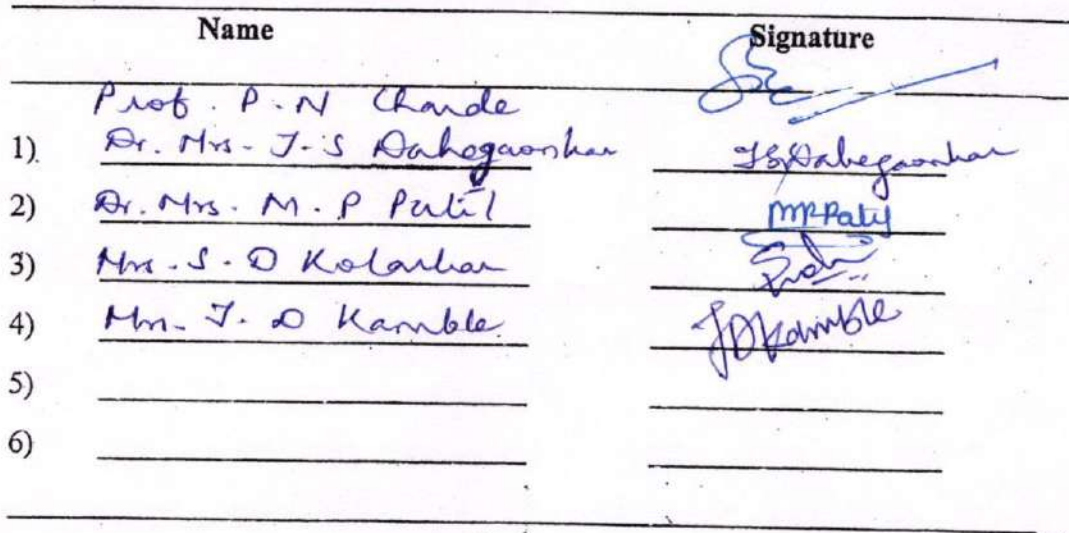 Name Signature
Prof. P. N Chande
1) Dr. Mrs. J. S Dahegaonkar JSDahegaonkar
2) Dr. Mrs. M. P Patil MPPatil
3) Mrs. S. D Kolarkar
4) Mrs. J. D Kamble JDKamble
5)
6)